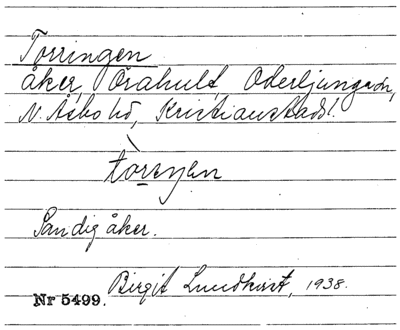 Torringen
åker, Örahult, Oderljunga sn,
N. Åsbo hd, Kristianstads l.
Sandig åker.
Birgit Lundkvist, 1938.
Nr 5499.